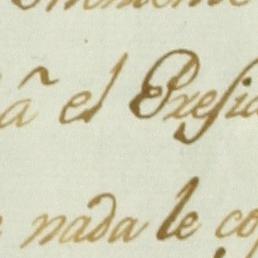 ã el Presid
nada le co